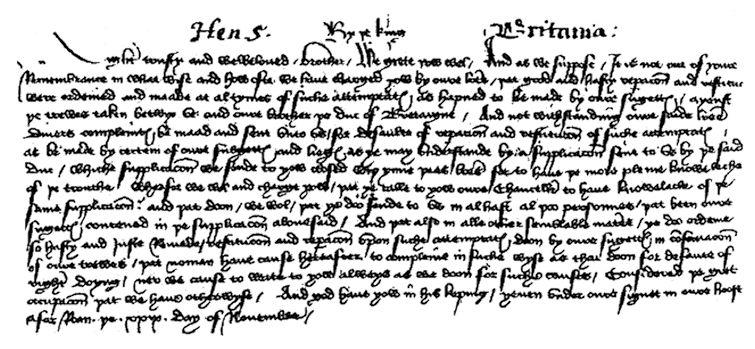 Hen 5. By þe king Britania:
trusty and welbeloved brother, We grete yow wel, And as we suppose, It is not out of youre
Remembrance in what wyse and how ofte we have charged yow by oure lres, þat good and hasty reparacōn and restitucōn
were ordeined and maade at al tymes of suche attemptats, as hapned to be made by oure sugetts, ayenst
þe trewes taken betwyx us and oure brother þe duc of Bretaigne, And not withstanding oure saide lres
divers complaints be maad and sent unto us, for defaulte of reparacōn and restitucōn of suche attemptats,
as be made by certein of oure subgetts and lieges, as ye may understande by a supplicacōn sent to us by þe said
duc, whiche supplicacōn we sende to yow closed wiþynne þees lres for to have þe more pleine knoweleche
of þe trouthe. Wherfor we wol and charge yow, þat ye calle to yow oure Chanceller to have knowlache of þe
same supplicacōn. and þat doon, we wol, þat ye do sende to us in al hast al þoo personnes, þat been oure
sugetts contened in þe supplicacōn abovesaid, And þat also in alle oþer semblable maters, ye do ordene
so hasty and juste Remede, restitucōn and reparacōn upon suche attemptats, doon by oure sugetts in conservacōn
of oure trewes, þat noman have cause hereafter, to compleine in suche wyse as thai doon for defaute of
right doyng, ner we cause to write to yow alweys as we doon for suche causes, Considered þe gret
occupacōn þat we have otherwyse, And god have yow in his keping, yeven under oure signet in oure hoost
afore Roan. þe. xxix. day of November,